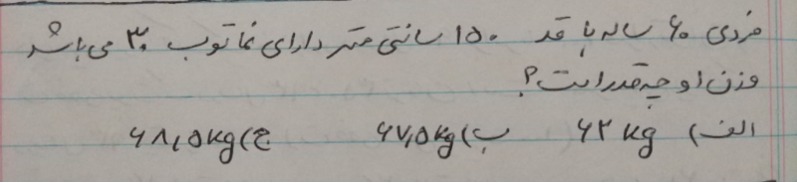 فردی ۶۰ ساله با قد ۱۵۰ سانتی متر دارای نما توب ۳۰ می باشد
وزن او چه قدر است؟
الف) ۶۲ kg ب) ۶۷٫۵ kg ج) ۶۸٫۵ kg